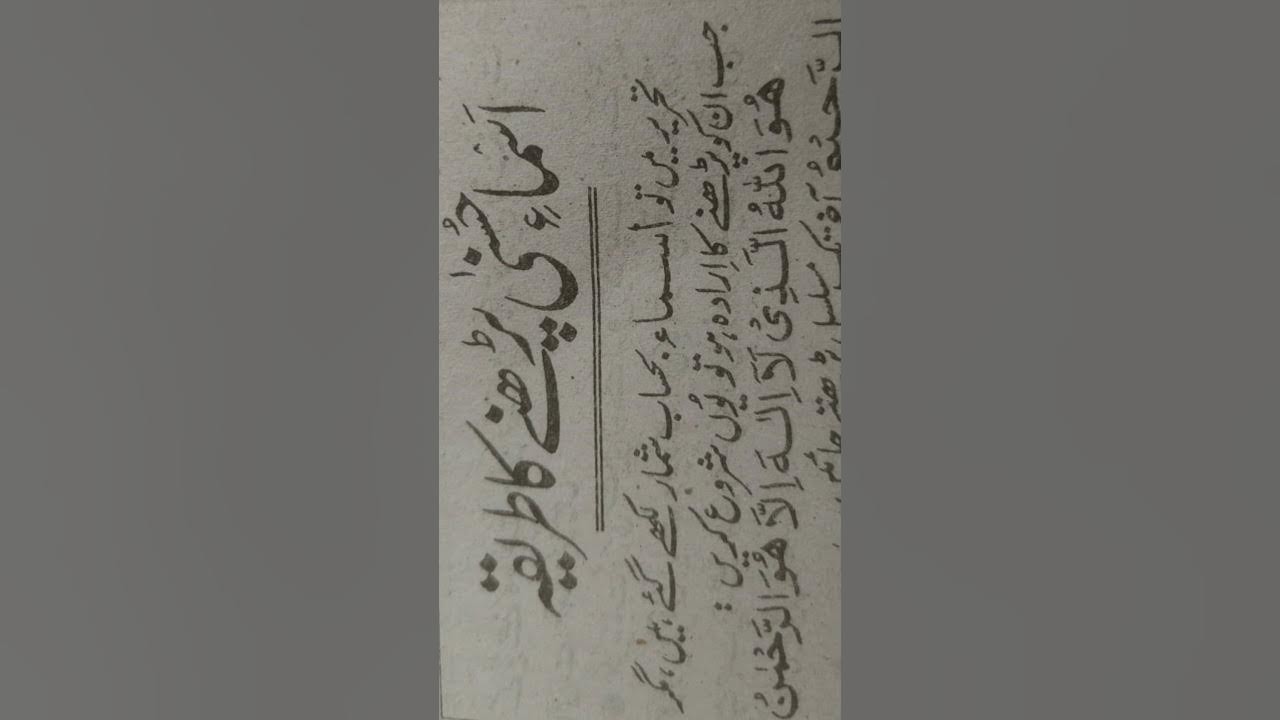 اَسمَاءِ حُسنٰی پڑھنے کا طریقہ
تحریر میں تو اسماء بحساب شمار لکھے گئے ہیں، مگر
جب ان کو پڑھنے کا اِرادہ ہو تو یُوں شروع کریں :
هُوَ اللّٰهُ الَّذِیْ لَآ اِلٰـهَ اِلَّا هُوَ الرَّحْمٰنُ
الرَّحِیْمُ آخر تک مسلسل پڑھتے جائیں